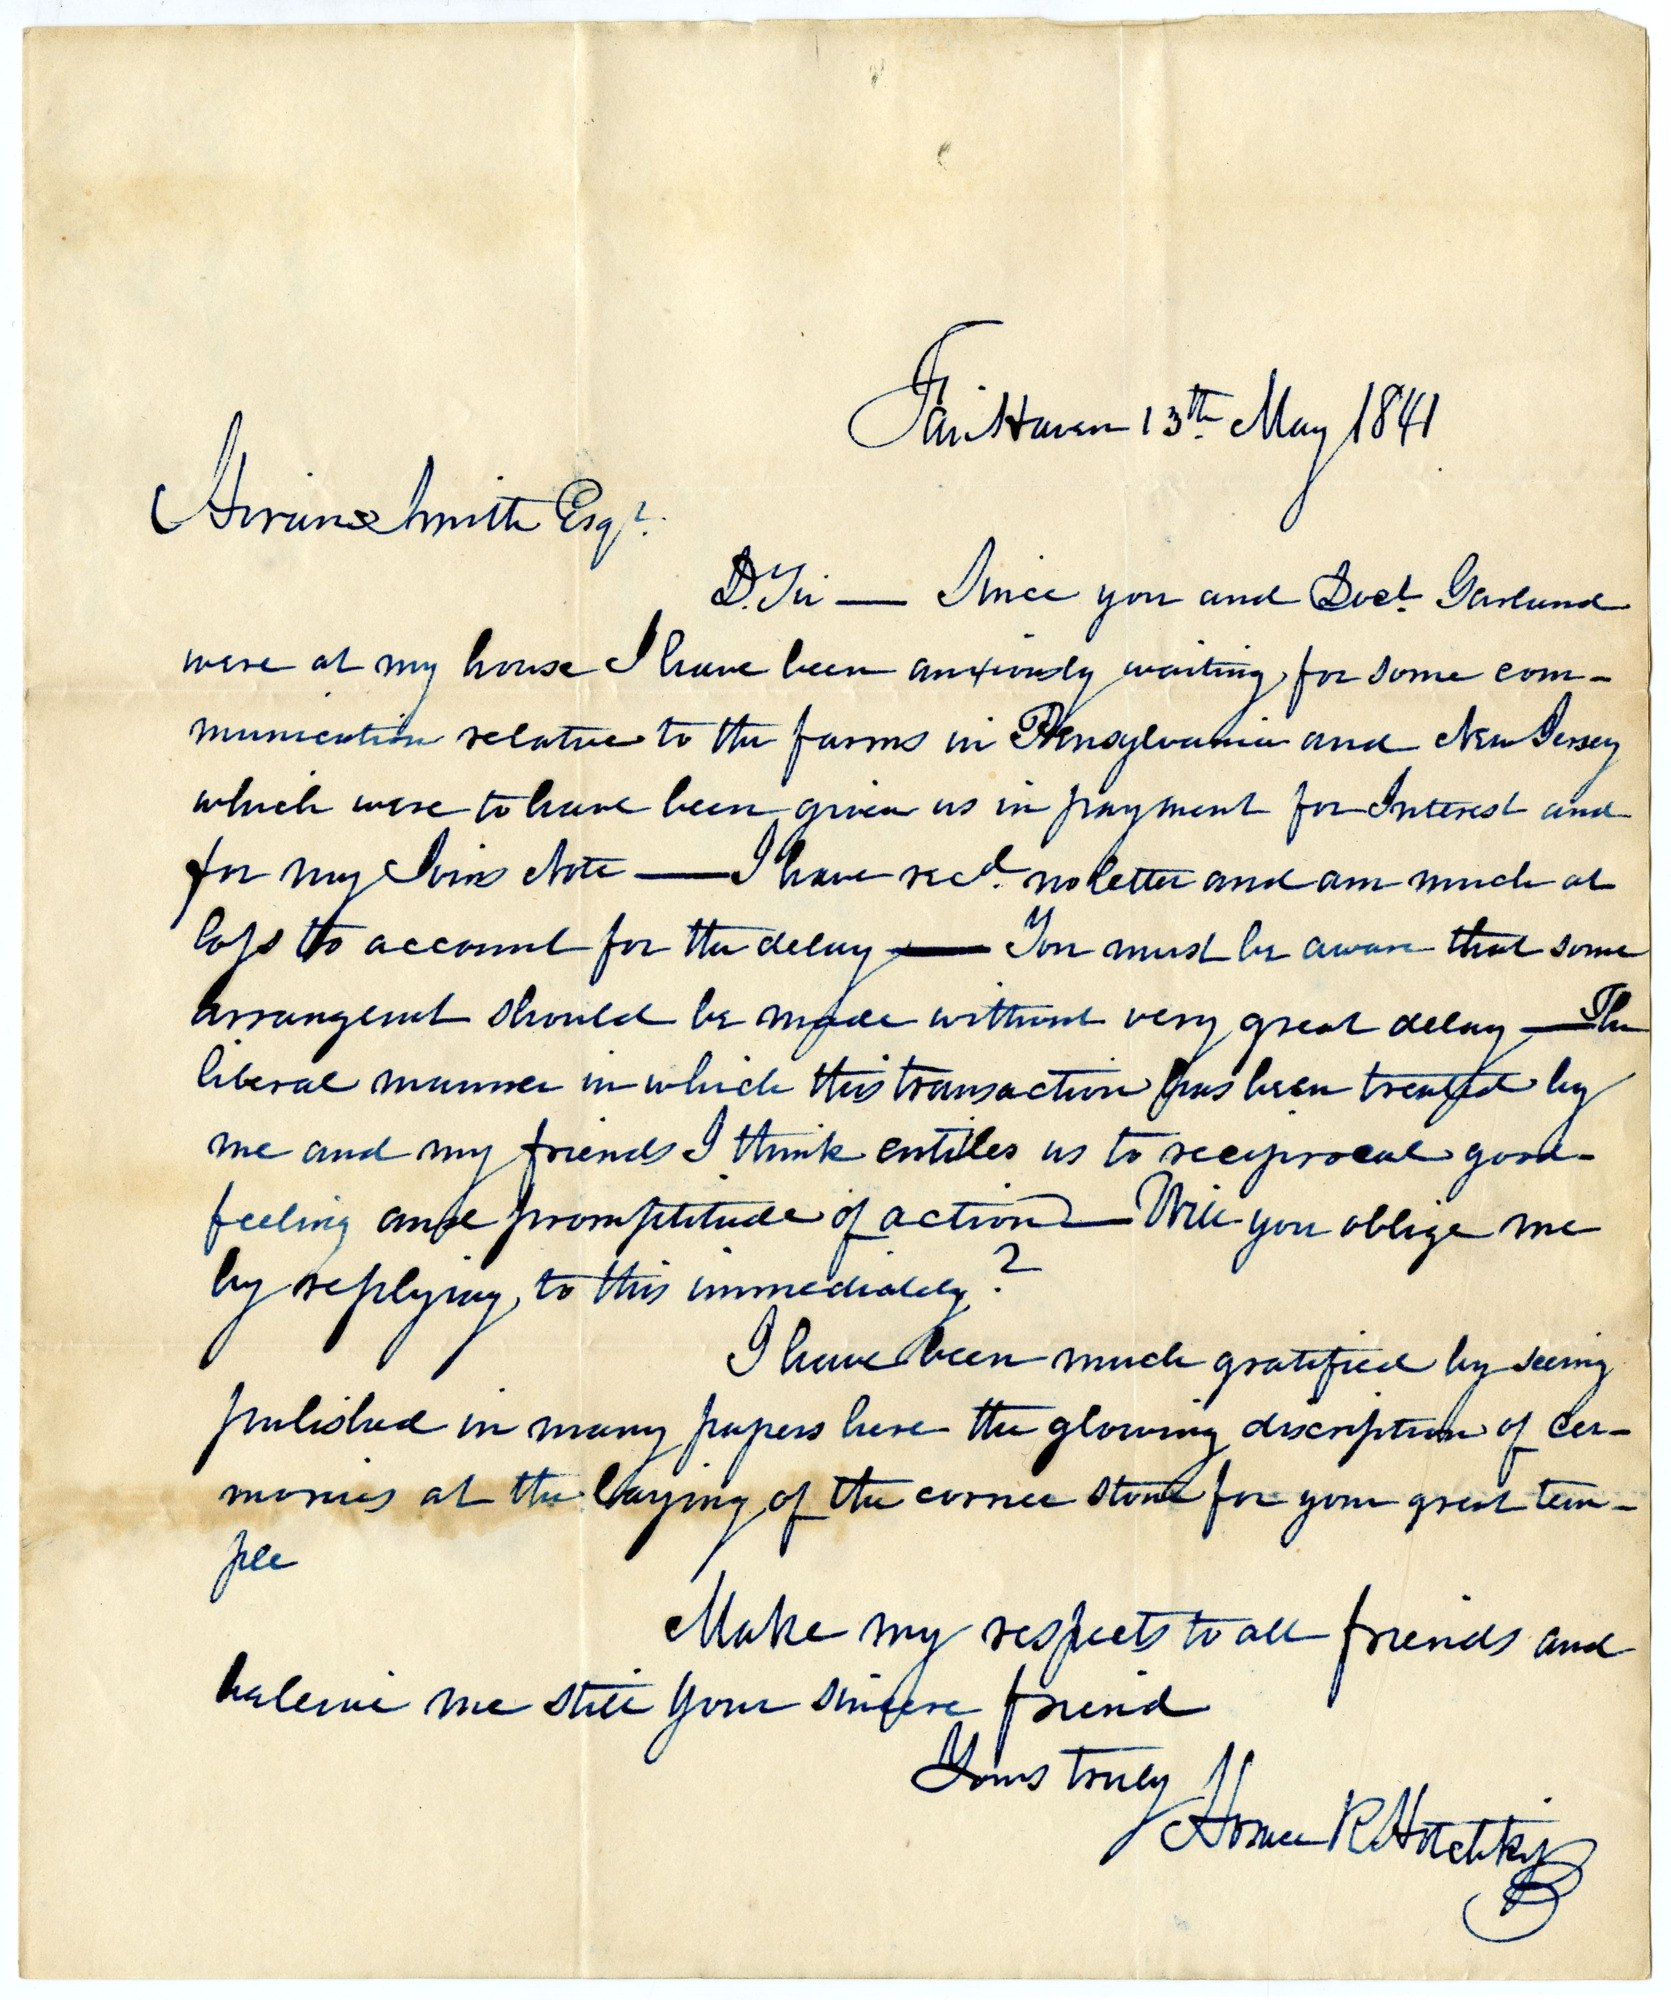 Fair Haven 13th. May 1841
Hiram Smith Esqr.
D. Sir — Since you and Doct. Garland
were at my house I have been anxiously waiting for some com-
munication relative to the farms in Pensylvania and New Jersey
which were to have been given us in payment for Interest and
for my Note — I have recd. no letter and am much at
loss to account for the delay — You must be aware that some
arrangent should be made without very great delay — The
liberal manner in which this transaction has been treated by
me and my friends I think entitles us to reciprocal good
feeling and promptitude of action — Will you oblige me
by replying to this immediately?
I have been much gratified by seeing
published in many papers here the glowing discription of cer-
monies at the laying of the corner stone for your great tem-
ple
Make my respects to all friends and
beleive me still your sincere friend
Yours truly
Horace R. Hotchkiss